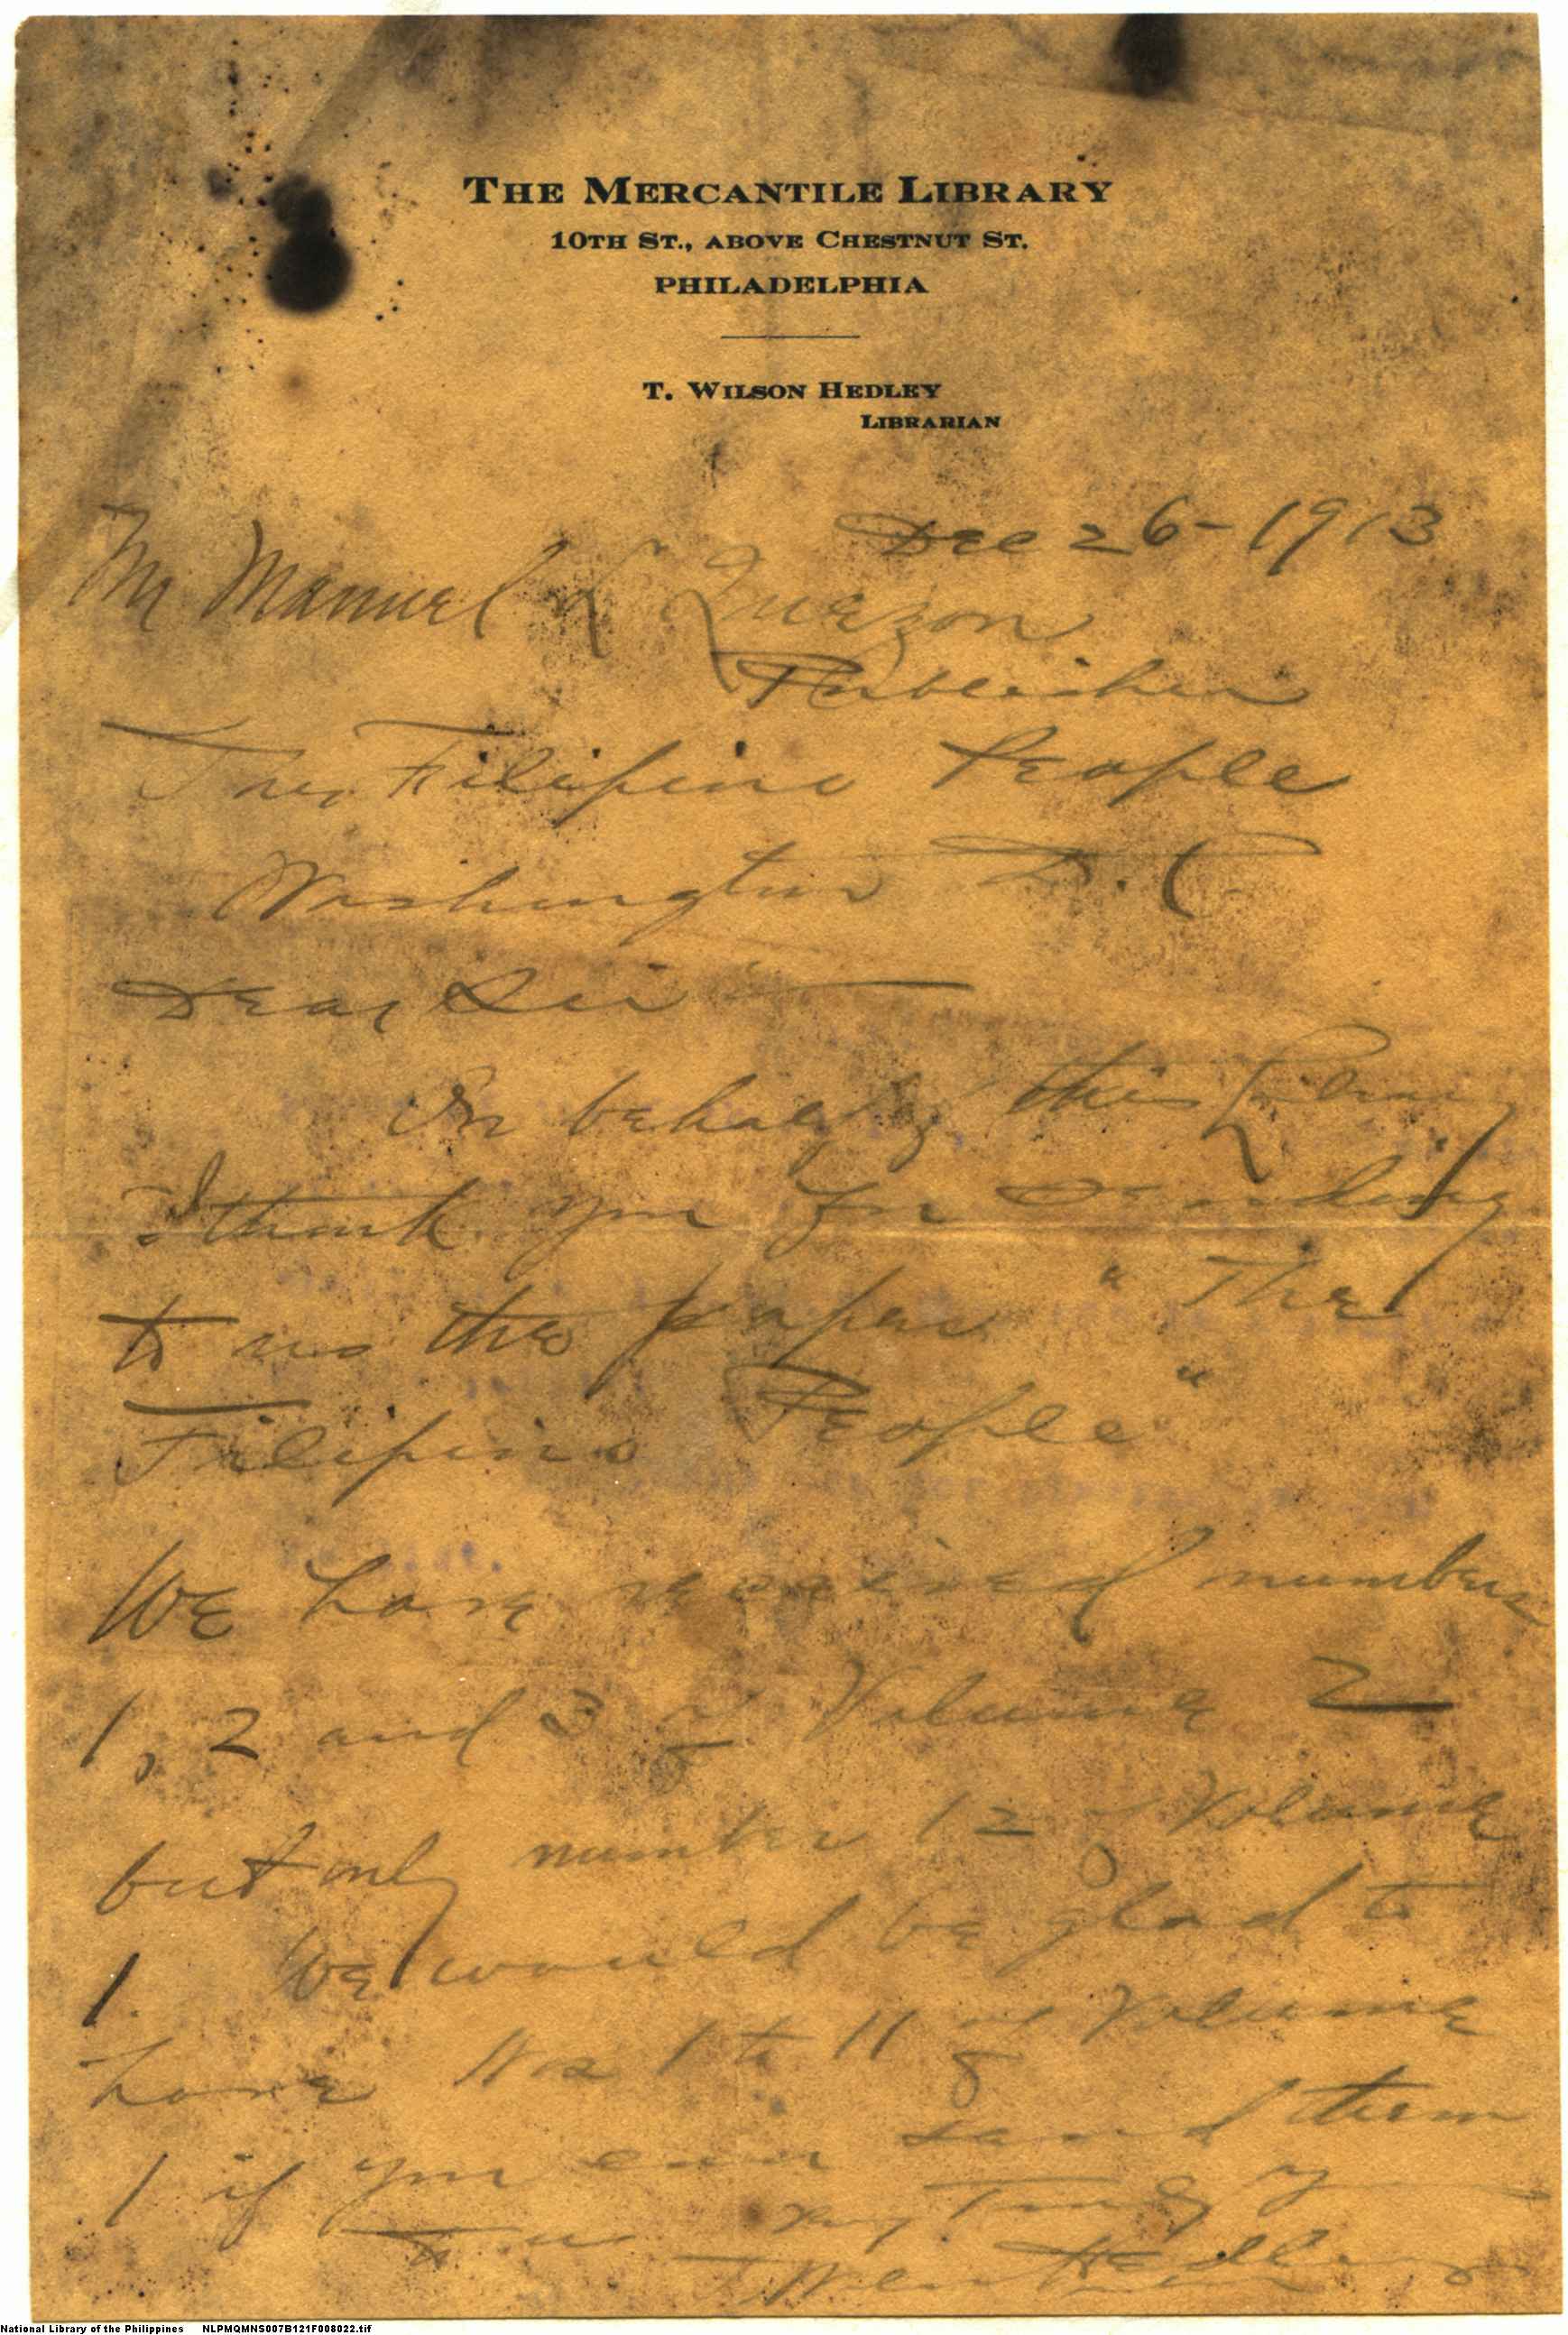 THE MERCANTILE LIBRARY
10TH ST., ABOVE CHESTNUT ST.
PHILADELPHIA
T. WILSON HEDLEY
LIBRARIAN
Dec 26-1913
Mr Manuel L Quezon
Publisher
The Filipino People
Washington D.C
Dear Sir
On behalf of this Library
I thank you for sending
to us the paper "The
Filipino People"
We have received numbers
1, 2 and 3 of Volume 2
but only number 12 of Volume
1. We would be glad to
have Nos 1 to 11 of Volume
1 if you can send them
to us Very Truly
T Wilson Hedley
National Library of the Philippines NLPMQMNS007B121F008022.tif